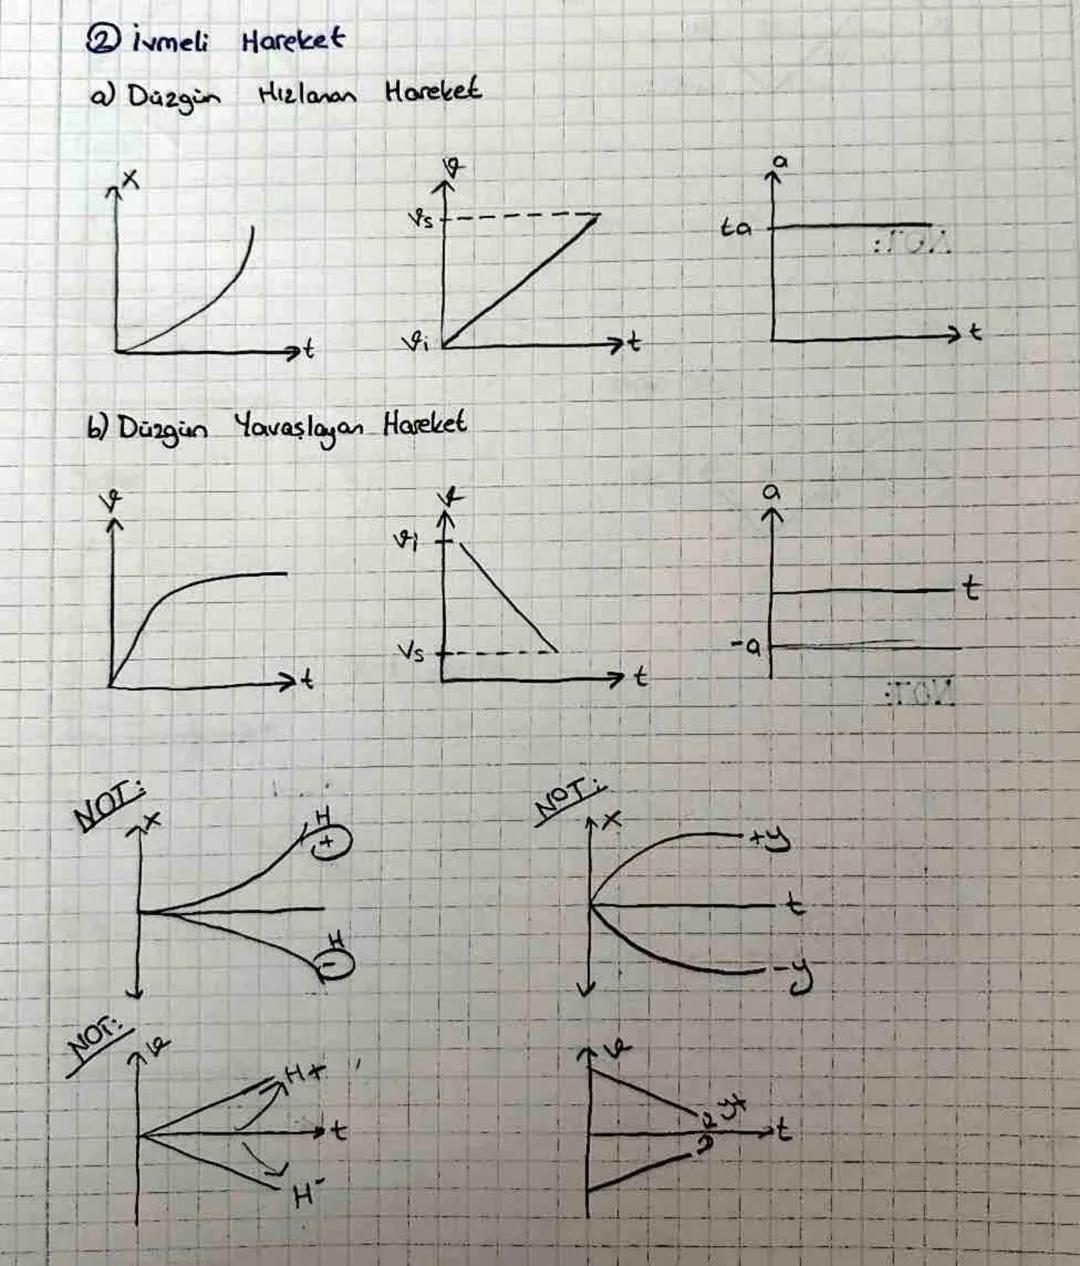 ② İvmeli Hareket
a) Düzgün Hızlanan Hareket
x
t
ϑ
ϑs
ϑi
t
a
ta
t
b) Düzgün Yavaşlayan Hareket
ϑ
t
ϑ
ϑi
Vs
t
a
t
-a
NOT:
x
H
+
H
-
NOT:
x
+y
t
-y
NOT:
ϑ
H+
t
H-
ϑ
y+
t